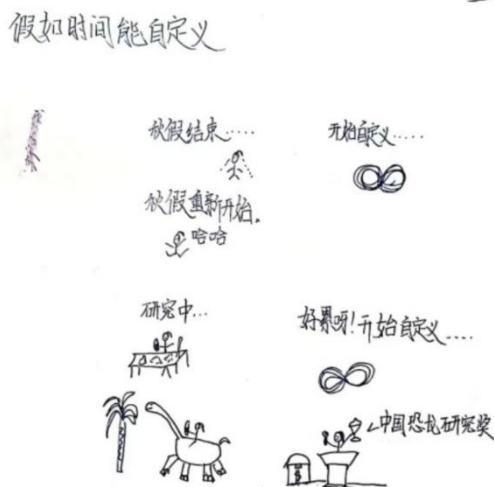 假如时间能自定义
秋假结束……
开始自定义……
秋假重新开始。
哈哈
研究中…
好累呀!开始自定义……
中国恐龙研究奖